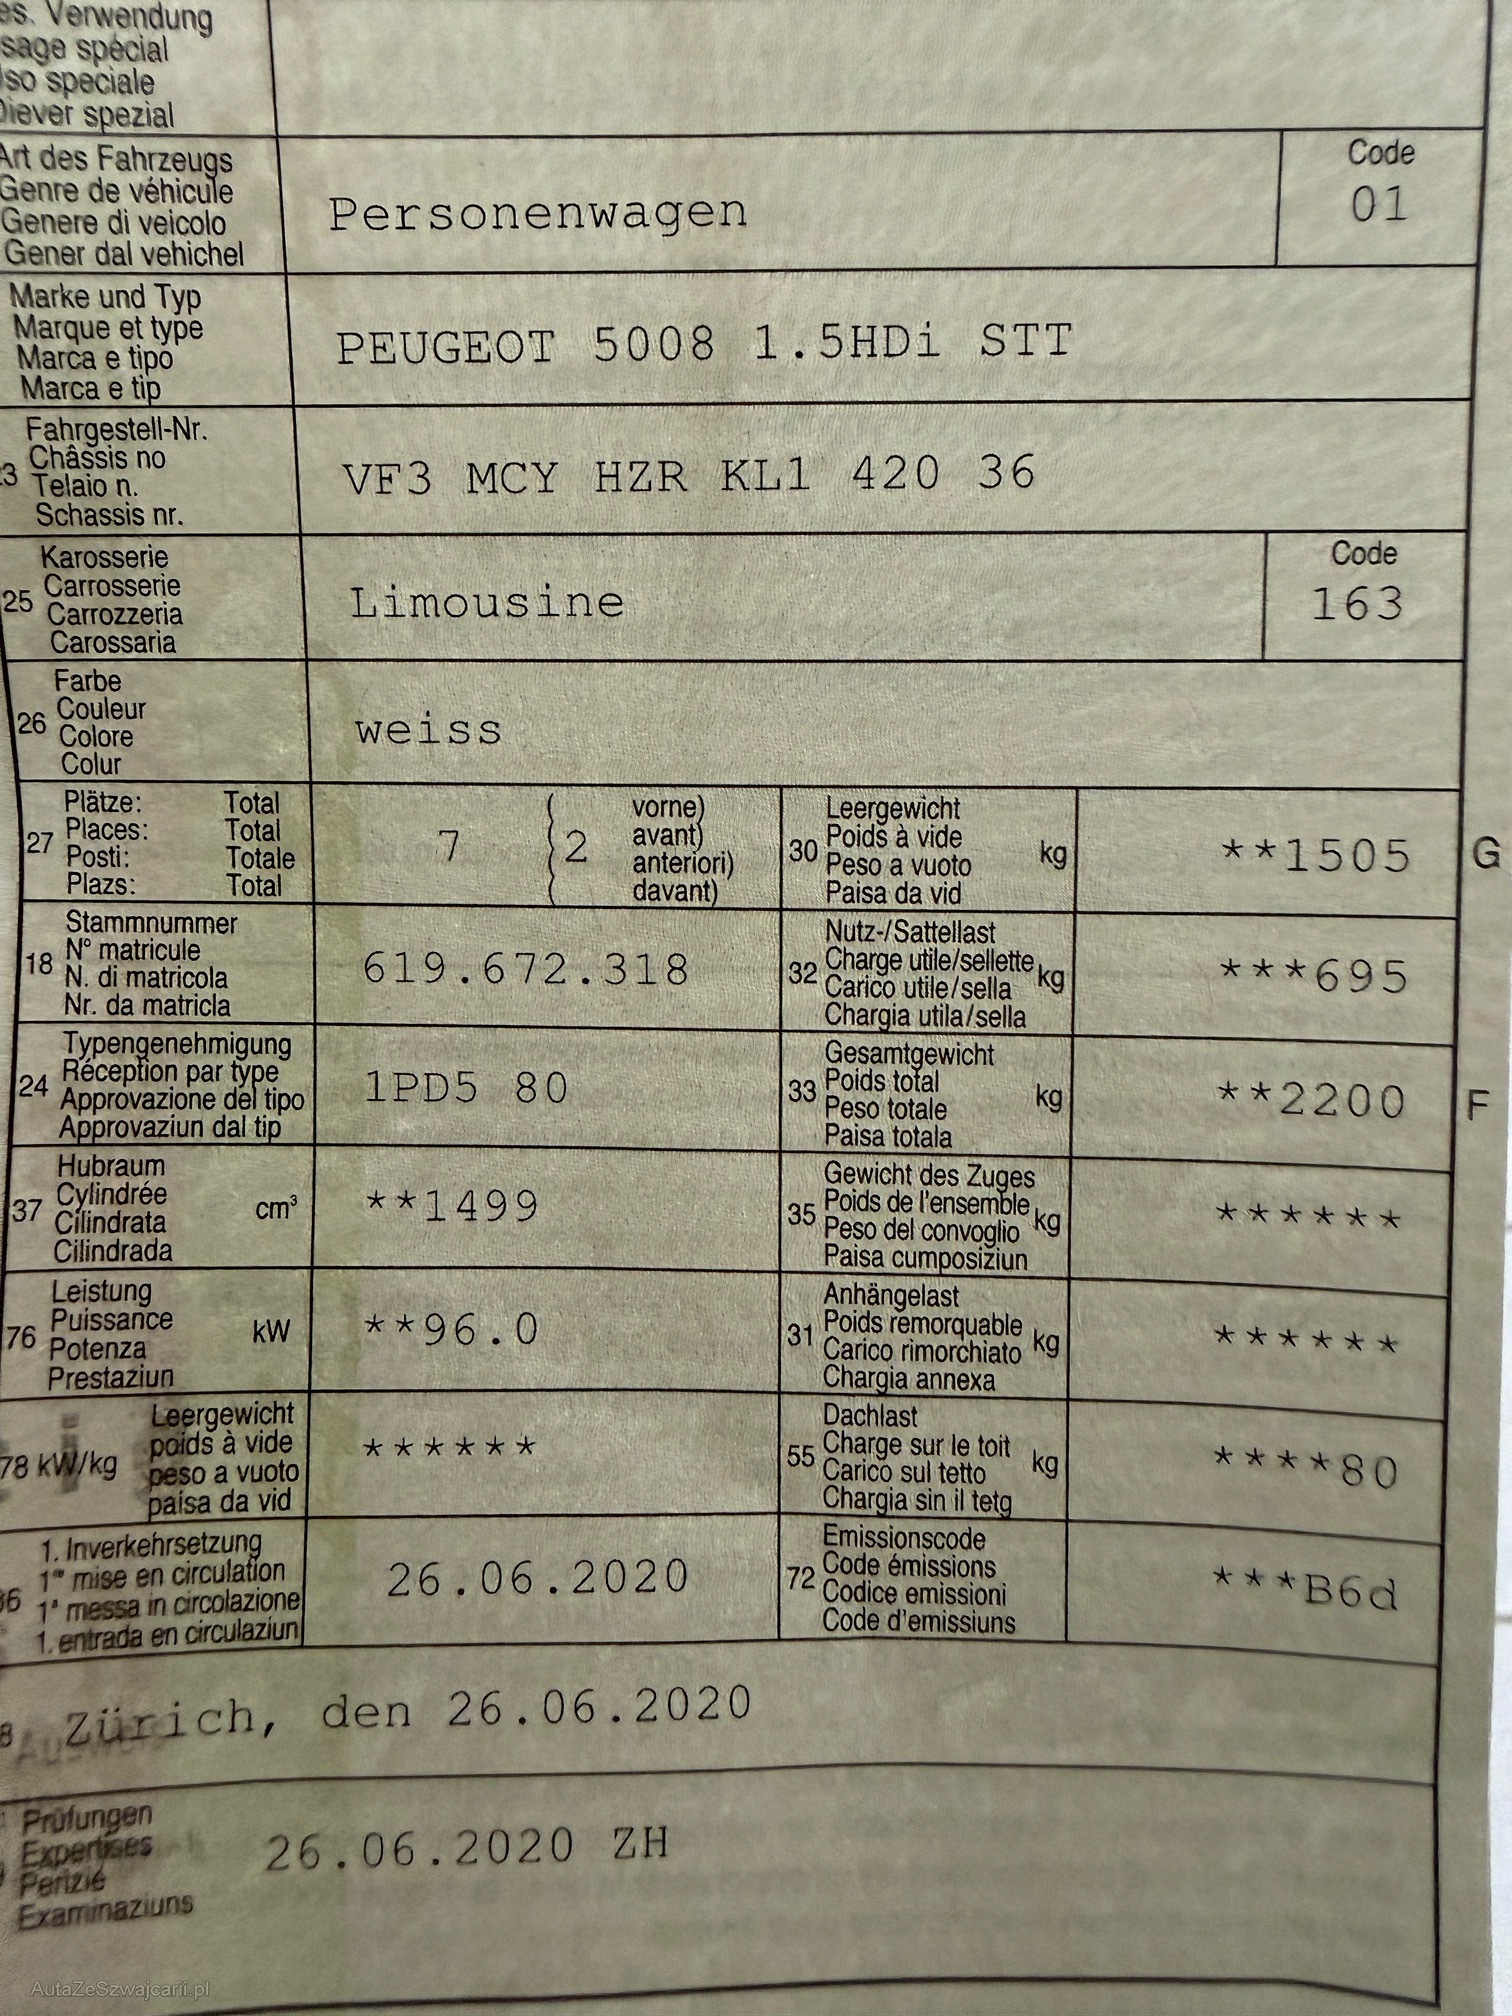 es. Verwendung
sage spécial
so speciale
Diever spezial
Art des Fahrzeugs
Genre de véhicule
Genere di veicolo
Gener dal vehichel
Personenwagen
Code
01
Marke und Typ
Marque et type
Marca e tipo
Marca e tip
PEUGEOT 5008 1.5HDi STT
23
Fahrgestell-Nr.
Châssis no
Telaio n.
Schassis nr.
VF3 MCY HZR KL1 420 36
25
Karosserie
Carrosserie
Carrozzeria
Carossaria
Limousine
Code
163
26
Farbe
Couleur
Colore
Colur
weiss
27
Plätze: Total
Places: Total
Posti: Totale
Plazs: Total
7
( vorne)
( 2 avant)
( anteriori)
( davant)
30
Leergewicht
Poids à vide
Peso a vuoto
Paisa da vid
kg
**1505
G
18
Stammnummer
N° matricule
N. di matricola
Nr. da matricla
619.672.318
32
Nutz-/Sattellast
Charge utile/sellette
Carico utile/sella
Chargia utila/sella
kg
***695
24
Typengenehmigung
Réception par type
Approvazione del tipo
Approvaziun dal tip
1PD5 80
33
Gesamtgewicht
Poids total
Peso totale
Paisa totala
kg
**2200
F
37
Hubraum
Cylindrée
Cilindrata
Cilindrada
cm³
**1499
35
Gewicht des Zuges
Poids de l'ensemble
Peso del convoglio
Paisa cumposiziun
kg
******
76
Leistung
Puissance
Potenza
Prestaziun
kW
**96.0
31
Anhängelast
Poids remorquable
Carico rimorchiato
Chargia annexa
kg
******
78 kW/kg
Leergewicht
poids à vide
peso a vuoto
paisa da vid
******
55
Dachlast
Charge sur le toit
Carico sul tetto
Chargia sin il tetg
kg
****80
36
1. Inverkehrsetzung
1re mise en circulation
1a messa in circolazione
1. entrada en circulaziun
26.06.2020
72
Emissionscode
Code émissions
Codice emissioni
Code d'emissiuns
***B6d
8
Zürich, den 26.06.2020
Prüfungen
Expertises
Perizie
Examinaziuns
26.06.2020 ZH
AutaZeSzwajcarii.pl